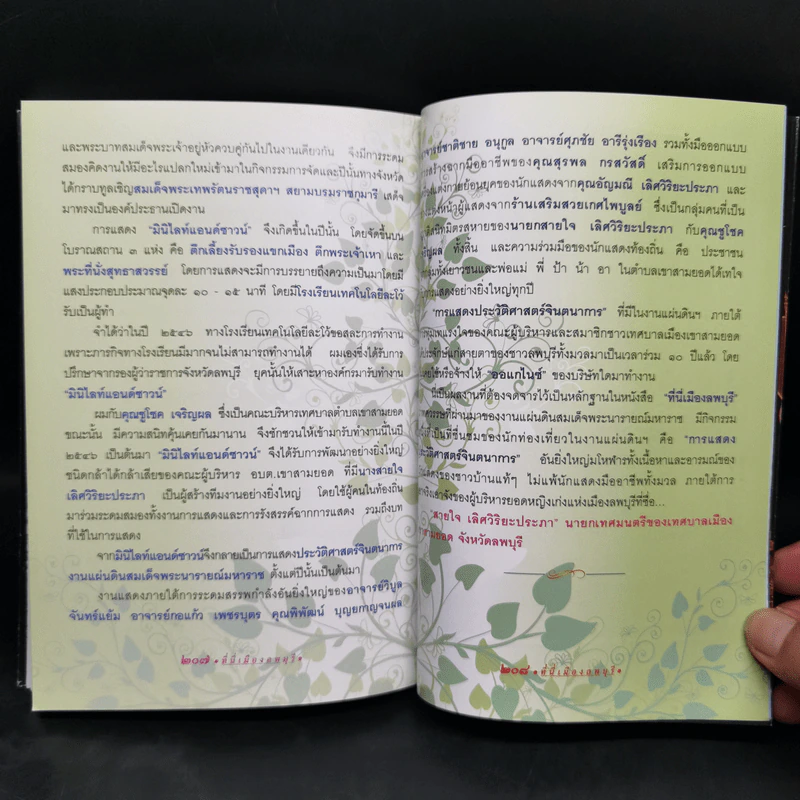 และพระบาทสมเด็จพระเจ้าอยู่หัวควบคู่กันไปในงานเดียวกัน จึงมีการระดม
สมองคิดงานให้มีอะไรแปลกใหม่เข้ามาในกิจกรรมการจัดและปีนั้นทางจังหวัด
ได้กราบทูลเชิญสมเด็จพระเทพรัตนราชสุดาฯ สยามบรมราชกุมารี เสด็จ
มาทรงเป็นองค์ประธานเปิดงาน
การแสดง “มินิไลท์แอนด์ซาวน์” จึงเกิดขึ้นในปีนั้น โดยจัดขึ้นบน
โบราณสถาน ๓ แห่ง คือ ตึกเลี้ยงรับรองแขกเมือง ตึกพระเจ้าเหา และ
พระที่นั่งสุทธาสวรรย์ โดยการแสดงจะมีการบรรยายถึงความเป็นมาโดยมี
แสงประกอบประมาณจุดละ ๑๐ - ๑๕ นาที โดยมีโรงเรียนเทคโนโลยีละโว้
รับเป็นผู้ทำ
จำได้ว่าในปี ๒๕๔๖ ทางโรงเรียนเทคโนโลยีละโว้ขอสละการทำงาน
เพราะภารกิจทางโรงเรียนมีมากจนไม่สามารถทำงานได้ ผมเองซึ่งได้รับการ
ปรึกษาจากรองผู้ว่าราชการจังหวัดลพบุรี ยุคนั้นให้เสาะหาองค์กรมารับทำงาน
“มินิไลท์แอนด์ซาวน์”
ผมกับคุณชูโชค เจริญผล ซึ่งเป็นคณะบริหารเทศบาลตำบลเขาสามยอด
ขณะนั้น มีความสนิทคุ้นเคยกันมานาน จึงชักชวนให้เข้ามารับทำงานนี้ในปี
๒๕๔๖ เป็นต้นมา “มินิไลท์แอนด์ซาวน์” จึงได้รับการพัฒนาอย่างยิ่งใหญ่
ชนิดกล้าได้กล้าเสียของคณะผู้บริหาร อบต.เขาสามยอด ที่มีนางสายใจ
เลิศวิริยะประภา เป็นผู้สร้างทีมงานอย่างยิ่งใหญ่ โดยใช้ผู้คนในท้องถิ่น
มาร่วมระดมสมองทั้งงานการแสดงและการรังสรรค์ฉากการแสดง รวมถึงบท
ที่ใช้ในการแสดง
จากมินิไลท์แอนด์ซาวน์จึงกลายเป็นการแสดงประวัติศาสตร์จินตนาการ
งานแผ่นดินสมเด็จพระนารายณ์มหาราช ตั้งแต่ปีนั้นเป็นต้นมา
งานแสดงภายใต้การระดมสรรพกำลังอันยิ่งใหญ่ของอาจารย์วิบูล
จันทร์แย้ม อาจารย์กอแก้ว เพชรบุตร คุณพิพัฒน์ บุญยกาญจนผล
๒๐๗ • ที่นี่เมืองลพบุรี •
อาจารย์ชาติชาย อนุกูล อาจารย์ศุภชัย อารีรุ่งเรือง รวมทั้งมือออกแบบ
สร้างฉากมืออาชีพของคุณสุรพล กรสวัสดิ์ เสริมการออกแบบ
แต่งกายย้อนยุคของนักแสดงจากคุณอัญมณี เลิศวิริยะประภา และ
หน้าผู้แสดงจากร้านเสริมสวยเกศไพบูลย์ ซึ่งเป็นกลุ่มคนที่เป็น
มิตรสหายของนายกสายใจ เลิศวิริยะประภา กับคุณชูโชค
ทั้งสิ้น และความร่วมมือของนักแสดงท้องถิ่น คือ ประชาชน
ทั้งเยาวชนและพ่อแม่ พี่ ป้า น้า อา ในตำบลเขาสามยอดได้เทใจ
แสดงอย่างยิ่งใหญ่ทุกปี
“การแสดงประวัติศาสตร์จินตนาการ” ที่มีในงานแผ่นดินฯ ภายใต้
ทุ่มเทแรงใจของคณะผู้บริหารและสมาชิกชาวเทศบาลเมืองเขาสามยอด
ประจักษ์แก่สายตาของชาวลพบุรีทั้งมวลมาเป็นเวลาร่วม ๑๐ ปีแล้ว โดย
ใช้หรือจ้างให้ “ออแกไนซ์” ของบริษัทใดมาทำงาน
เป็นผลงานที่ต้องจดจารไว้เป็นหลักฐานในหนังสือ “ที่นี่เมืองลพบุรี”
ทศวรรษที่ผ่านมาของงานแผ่นดินสมเด็จพระนารายณ์มหาราช มีกิจกรรม
เป็นที่ชื่นชมของนักท่องเที่ยวในงานแผ่นดินฯ คือ “การแสดง
ประวัติศาสตร์จินตนาการ” อันยิ่งใหญ่มโหฬารทั้งเนื้อหาและอารมณ์ของ
แสดงของชาวบ้านแท้ๆ ไม่แพ้นักแสดงมืออาชีพทั้งมวล ภายใต้การ
จริงเอาจังของผู้บริหารยอดหญิงเก่งแห่งเมืองลพบุรีที่ชื่อ...
“สายใจ เลิศวิริยะประภา” นายกเทศมนตรีของเทศบาลเมือง
เขาสามยอด จังหวัดลพบุรี
๒๐๘ • ที่นี่เมืองลพบุรี •